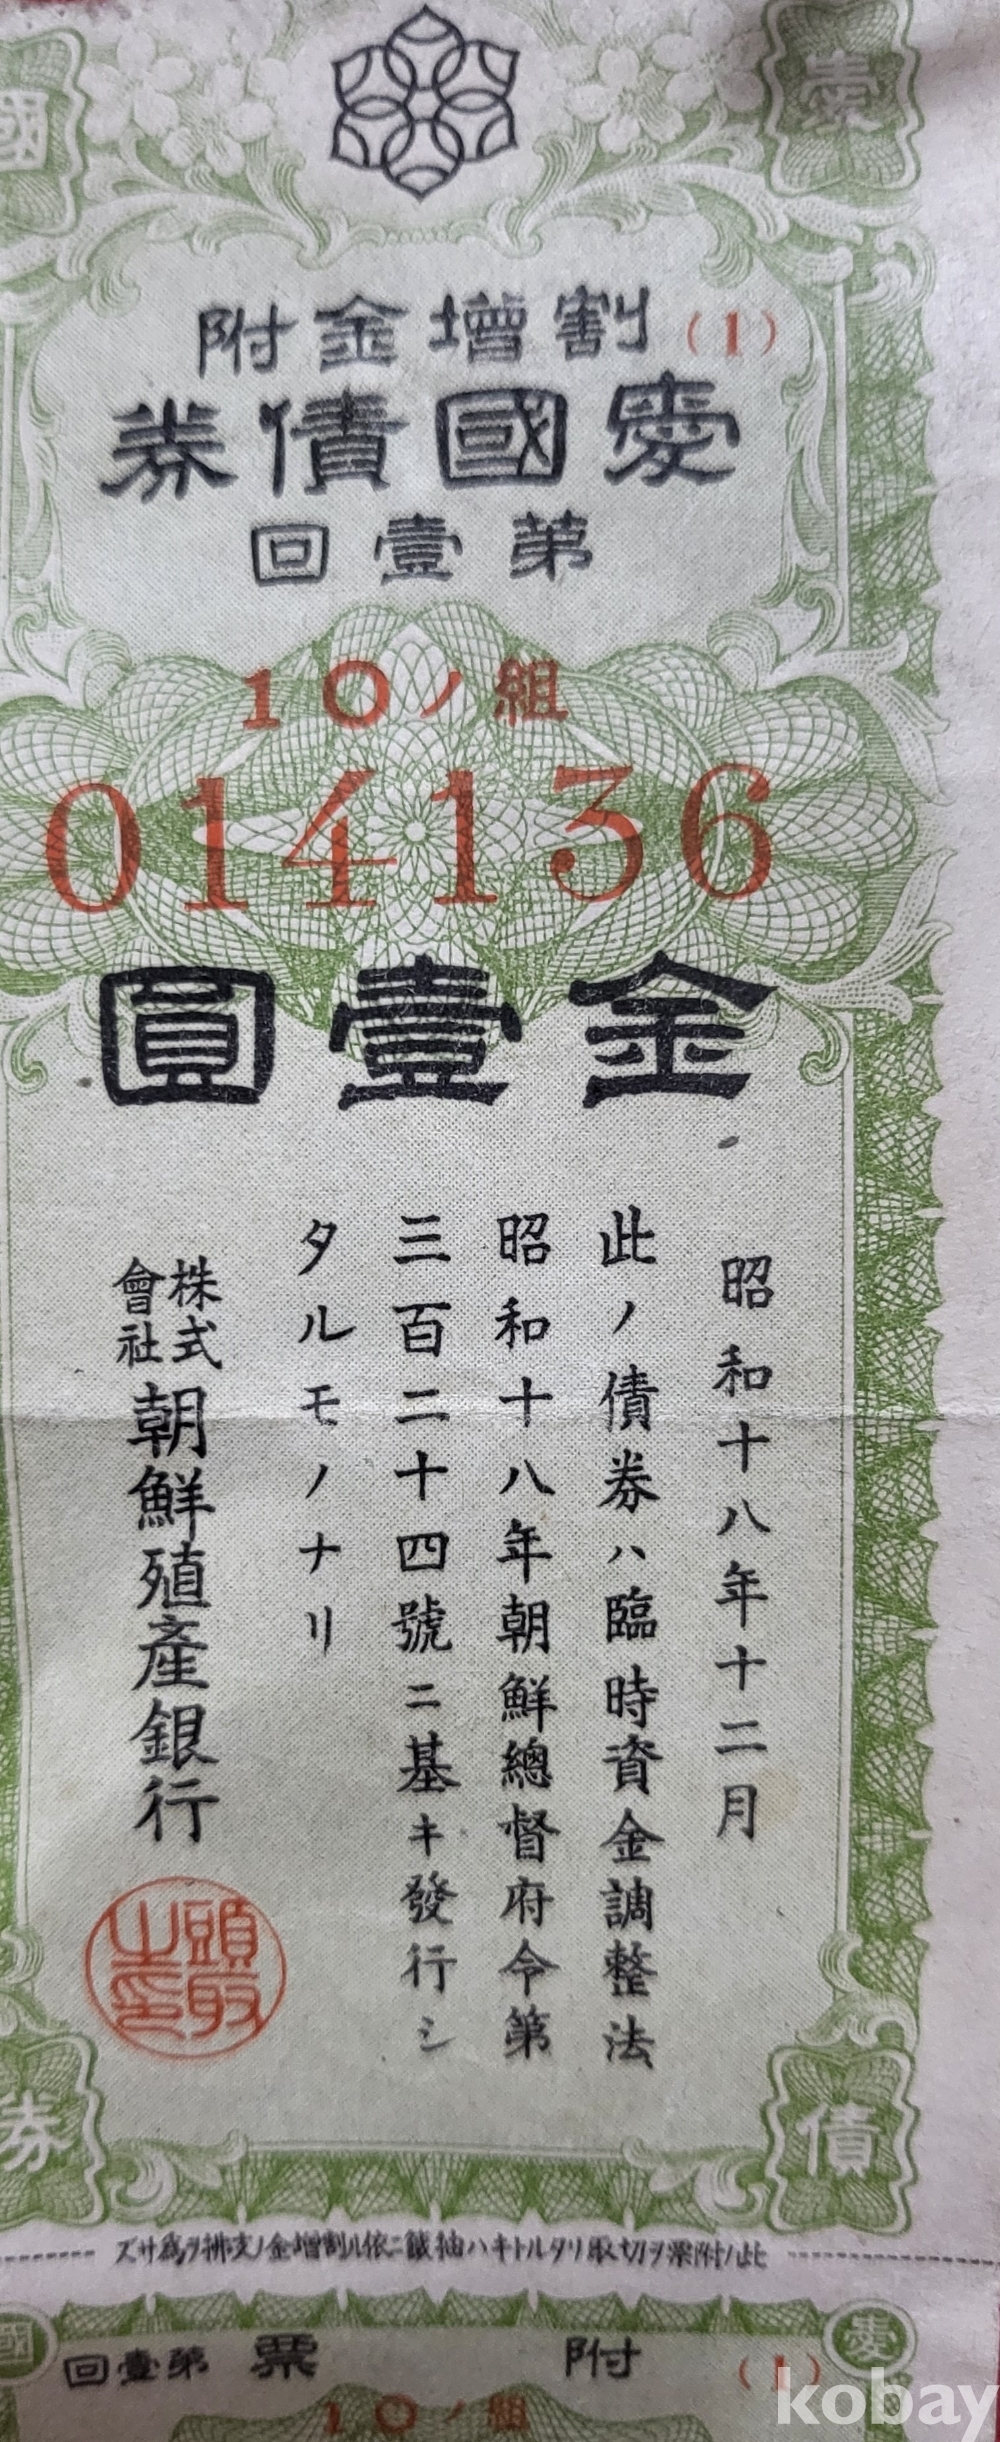 愛
國
割增金附
(1)
愛國債券
第壹回
10ノ組
014136
金壹圓
昭和十八年十二月
此ノ債券ハ臨時資金調整法
昭和十八年朝鮮總督府令第
三百二十四號ニ基キ發行シ
タルモノナリ
株式會社朝鮮殖產銀行
頭取之印
債
券
此ノ附票ヲ切取リタルトキハ抽籤ニ依ル割增金ノ支拂ヲ爲サズ
愛
國
附票
第壹回
(1)
10ノ組
kobay